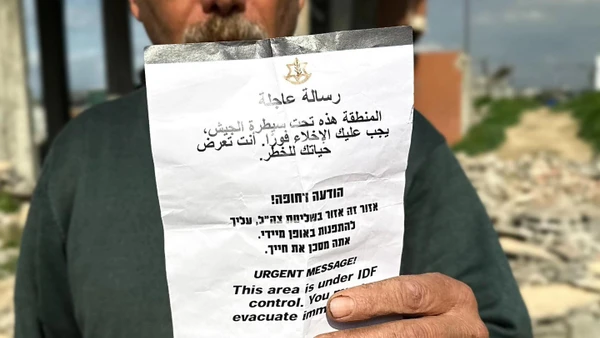 رسالة عاجلة
المنطقة هذه تحت سيطرة الجيش،
يجب عليك الإخلاء فورًا. أنت تعرض
حياتك للخطر.
הודעה דחופה!
אזור זה אזור בשליטת צה"ל, עליך
להתפנות באופן מיידי.
אתה מסכן את חייך.
URGENT MESSAGE!
This area is under IDF
control. You
evacuate